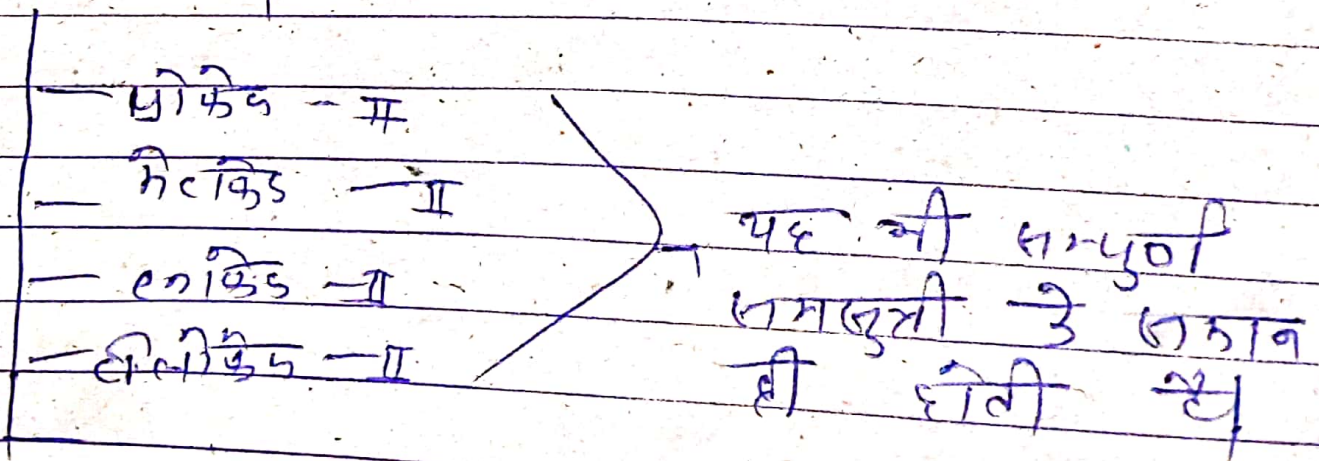 — प्रोफेज - II
— मेटाफेज — II
— एनाफेज — II
— टीलोफेज — II
यह भी सम्पुर्ण
समसुत्री के समान
ही होती है।